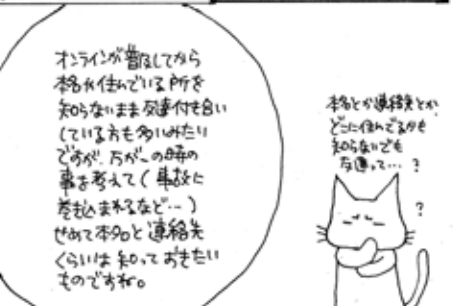 オンラインが普及してから
本名や住んでいる所を
知らないまま友達付き合い
している方も多いみたい
ですが、万が一の時の
事を考えて(事故に
巻き込まれるなど…)
せめて本名と連絡先
くらいは知っておきたい
ものですね。
本名とか連絡先とか
どこに住んでるかも
知らないでも
友達って…?
?